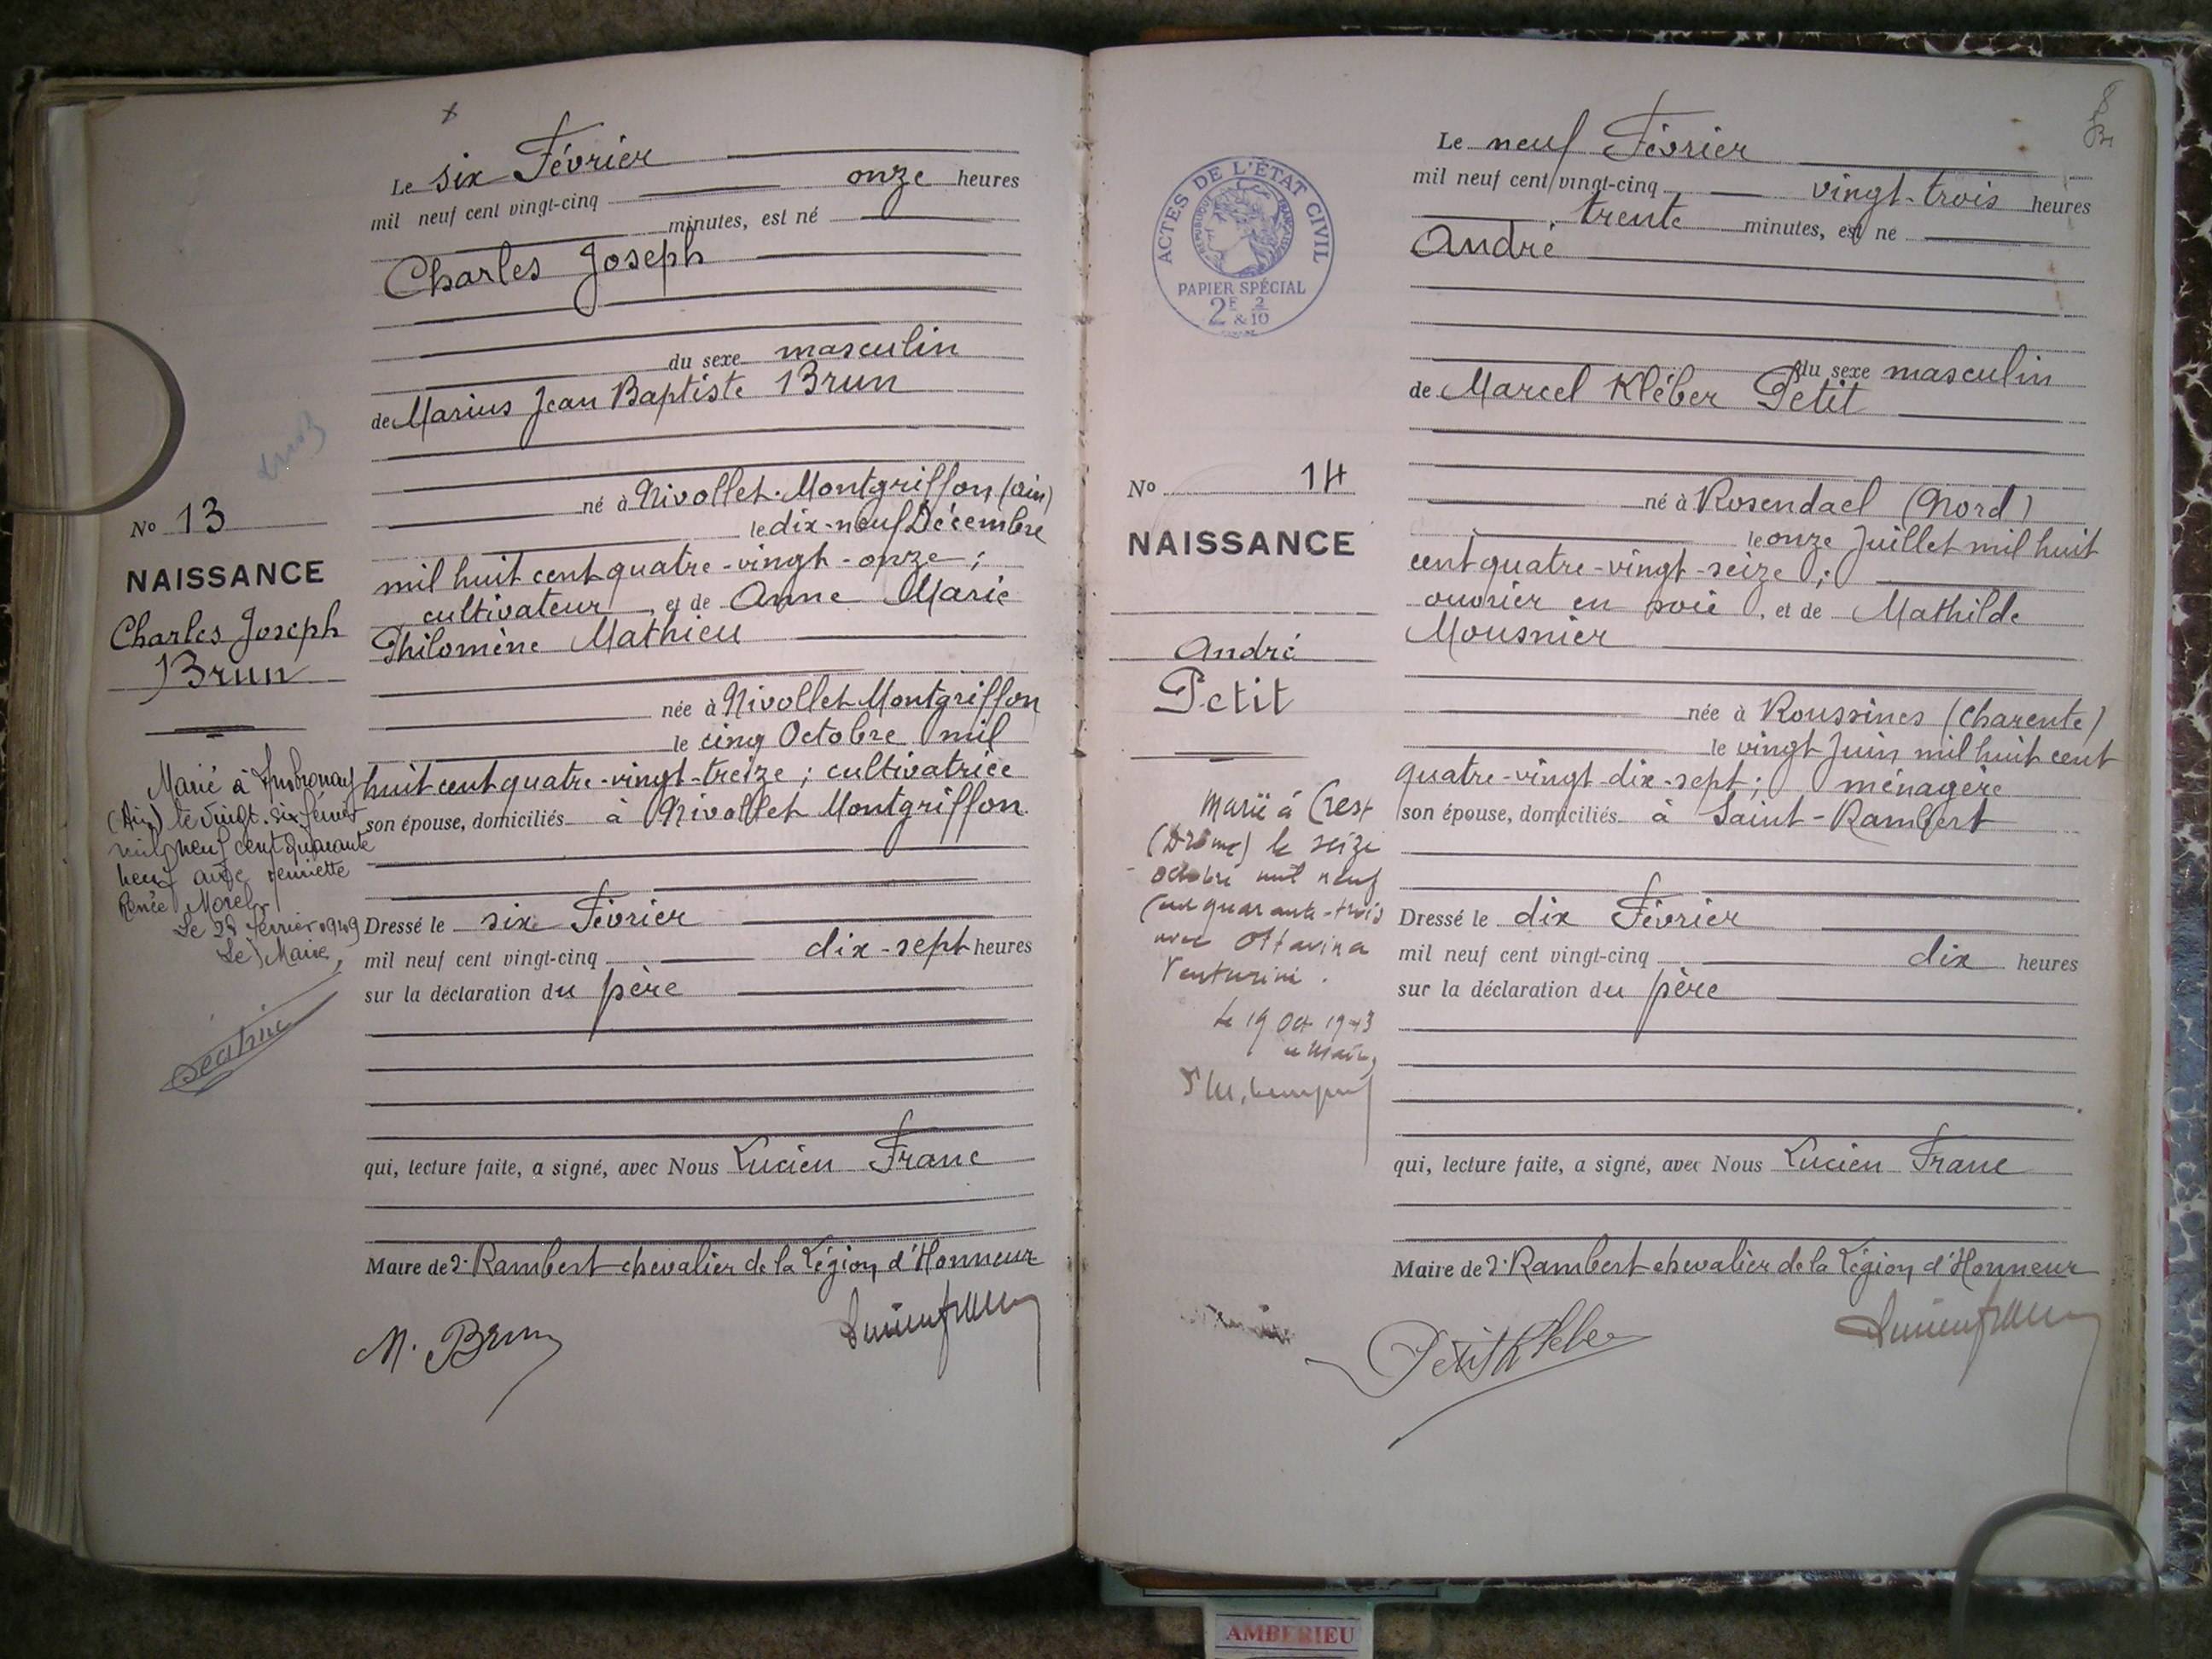 Le six Février
mil neuf cent vingt-cinq onze heures
minutes, est né
Charles Joseph
du sexe masculin
de Marius Jean Baptiste Brun
né à Nivollet-Montgriffon (Ain)
le dix-neuf Décembre
mil huit cent quatre-vingt-onze ;
cultivateur, et de Anne Marie
Philomène Mathieu
née à Nivollet Montgriffon
le cinq Octobre mil
huit cent quatre-vingt-treize ; cultivatrice
son épouse, domiciliés à Nivollet Montgriffon
Dressé le six Février
mil neuf cent vingt-cinq dix-sept heures
sur la déclaration du père
qui, lecture faite, a signé, avec Nous Lucien Franc
Maire de St Rambert chevalier de la Légion d'Honneur
M. Brun
No 13
NAISSANCE
Charles Joseph
Brun
Marié à Ambronay
(Ain) le vingt-six février
mil neuf cent quarante
neuf avec Henriette
Renée Morel
Le 28 février 1949
Le Maire,
ACTES DE L'ÉTAT CIVIL
RÉPUBLIQUE FRANÇAISE
PAPIER SPÉCIAL
2F & 2/10
8
Le neuf Février
mil neuf cent vingt-cinq vingt-trois heures
trente minutes, est né
André
du sexe masculin
de Marcel Kléber Petit
né à Rosendael (Nord)
le onze Juillet mil huit
cent quatre-vingt-seize ;
ouvrier en soie, et de Mathilde
Mousnier
née à Roussines (Charente)
le vingt Juin mil huit cent
quatre-vingt dix-sept ; ménagère
son épouse, domiciliés à Saint-Rambert
Dressé le dix Février
mil neuf cent vingt-cinq dix heures
sur la déclaration du père
qui, lecture faite, a signé, avec Nous Lucien Franc
Maire de St Rambert chevalier de la Légion d'Honneur
Petit Kleber
No 14
NAISSANCE
André
Petit
Marié à Crest
(Drôme) le seize
octobre mil neuf
cent quarante-trois
avec Ottavina
Venturini.
Le 19 Oct 1943
Le Maire,
AMBERIEU